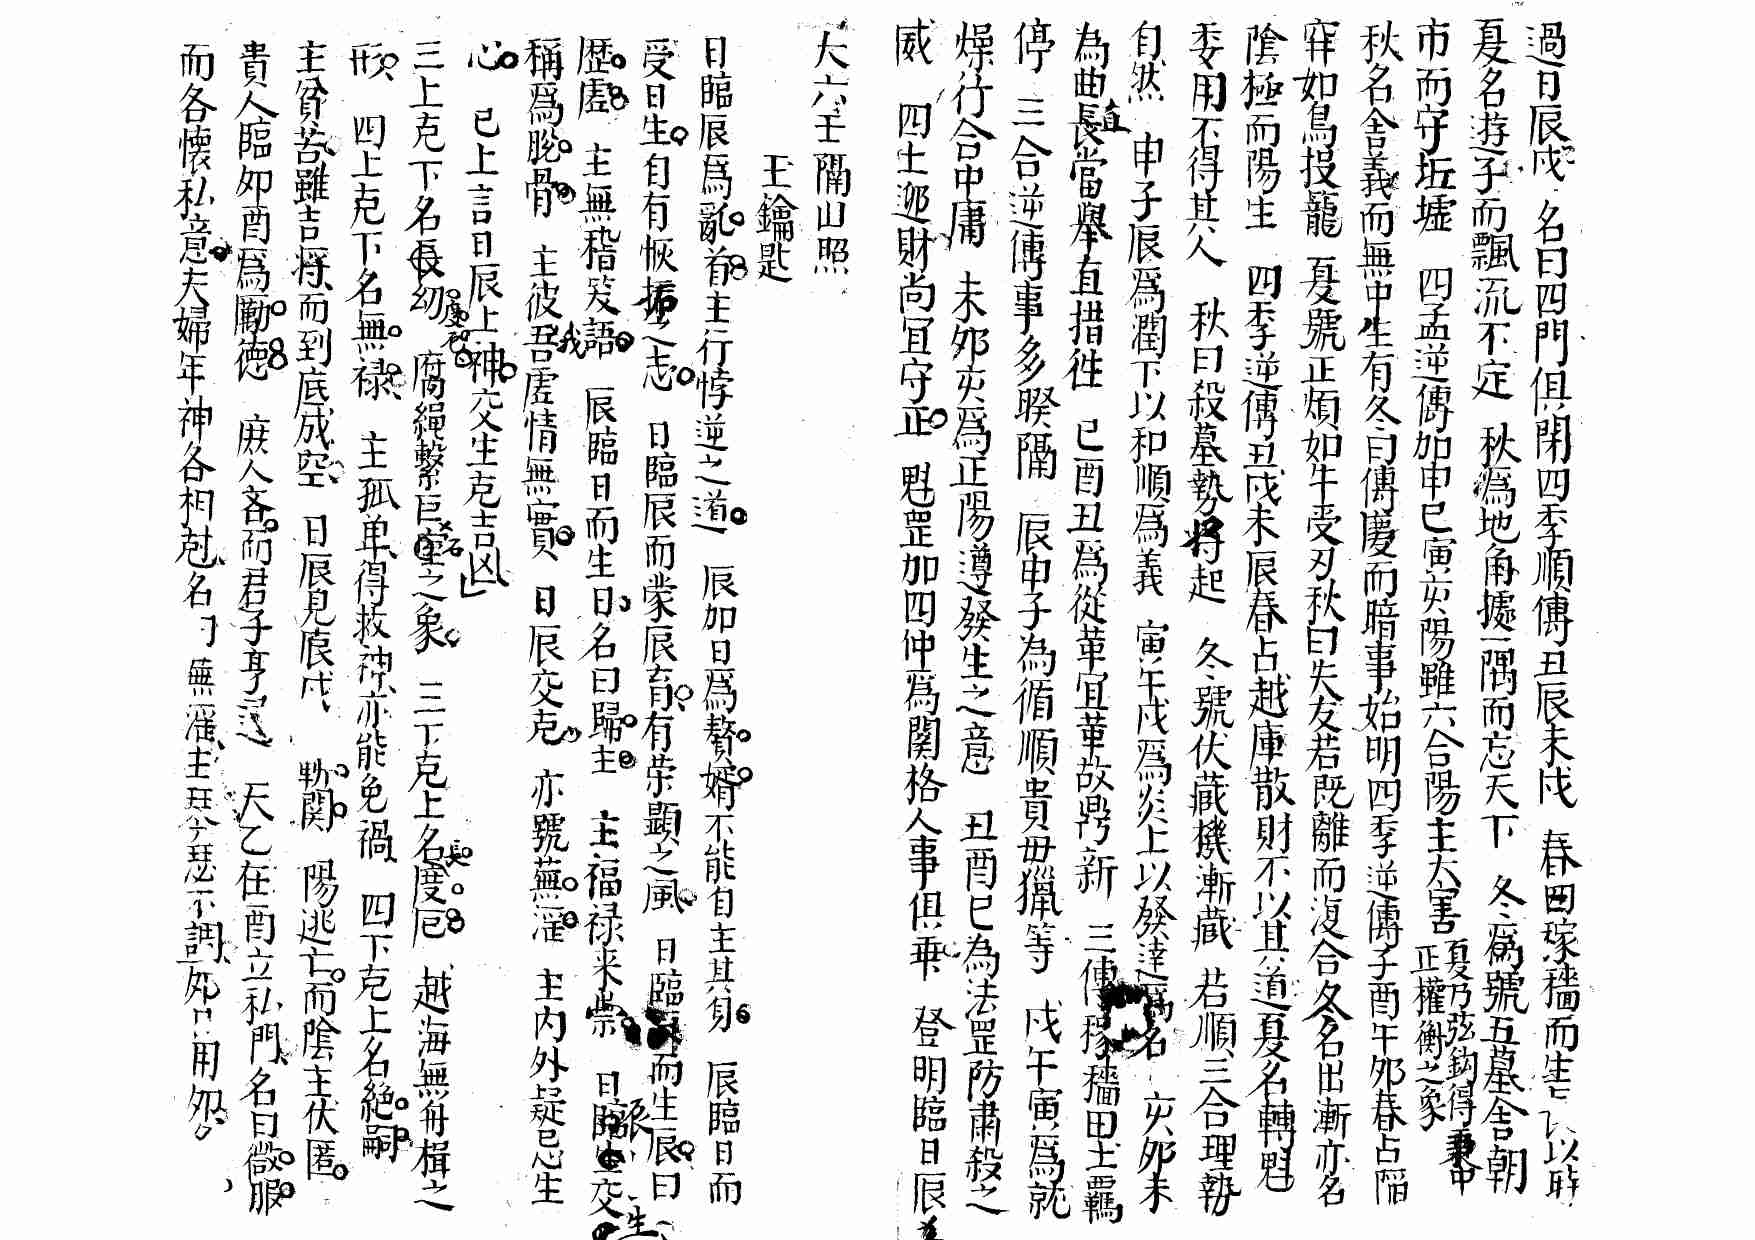 過日辰戌 名曰四門俱閉四季順傳丑辰未戌 春曰稼穡而生 以時
夏名遊子而飄流不定 秋爲地角據一隅而忘天下 冬爲號五墓舍朝
市而守坵墟 四孟逆傳加申巳寅亥陽雖六合陽主大害 夏乃弦鈎得秉中正權衡之象
秋名舍義而無中生有冬曰傳慶而暗事始明四季逆傳子酉午夘春占陷
穽如鳥投籠 夏號正煩如牛受刃秋曰失友若既離而復合冬名出漸亦名
陰極而陽生 四季逆傳丑戌未辰春占越庫散財不以其道夏名轉魁
委用不得其人 秋曰殺墓勢將起 冬號伏藏機漸藏 若順三合理勢
自然 申子辰爲潤下以和順爲義 寅午戌爲炎上以發達爲名 亥夘未
為曲直長當舉直措徃 巳酉丑爲從革宜革故鼎新 三傳稼穡田土羈
停 三合逆傳事多暌隔 辰申子為循順貴毋獵等 戌午寅爲就
燥行合中庸 未夘亥爲正陽遵發生之意 丑酉巳為法罡防肅殺之
威 四土迯財尚宜守正 魁罡加四仲爲関格人事俱乖 登明臨日辰
大六壬隔山照
玉鑰匙
日臨辰爲亂首主行悖逆之道 辰加日爲贅婿不能自主其身 辰臨日而
受日生自有恢振之志 日臨辰而蒙辰育有荣顯之風 日臨辰而生辰曰
歷虛 主無稽笑語 辰臨日而生日名曰歸主 主福禄来崇 日辰交生
稱爲脫骨 主彼我吾虛情無實 日辰交克 亦號蕪滛 主内外疑忌生
心 已上言日辰上神交生克吉凶
三上克下名長幼度厄 腐繩繫巨石之象 三下克上名長度厄 越海無舟楫之
形 四上克下名無禄 主孤单得救神亦能免禍 四下克上名絶嗣
主貧苦雖吉將而到底成空 日辰見辰戌 勒関 陽迯亡而陰主伏匿
貴人臨夘酉爲勵德 庶人吝而君子亨 天乙在酉立私門名曰微服
而各懷私意夫婦年神各相尅名曰蕪滛主琴瑟不調